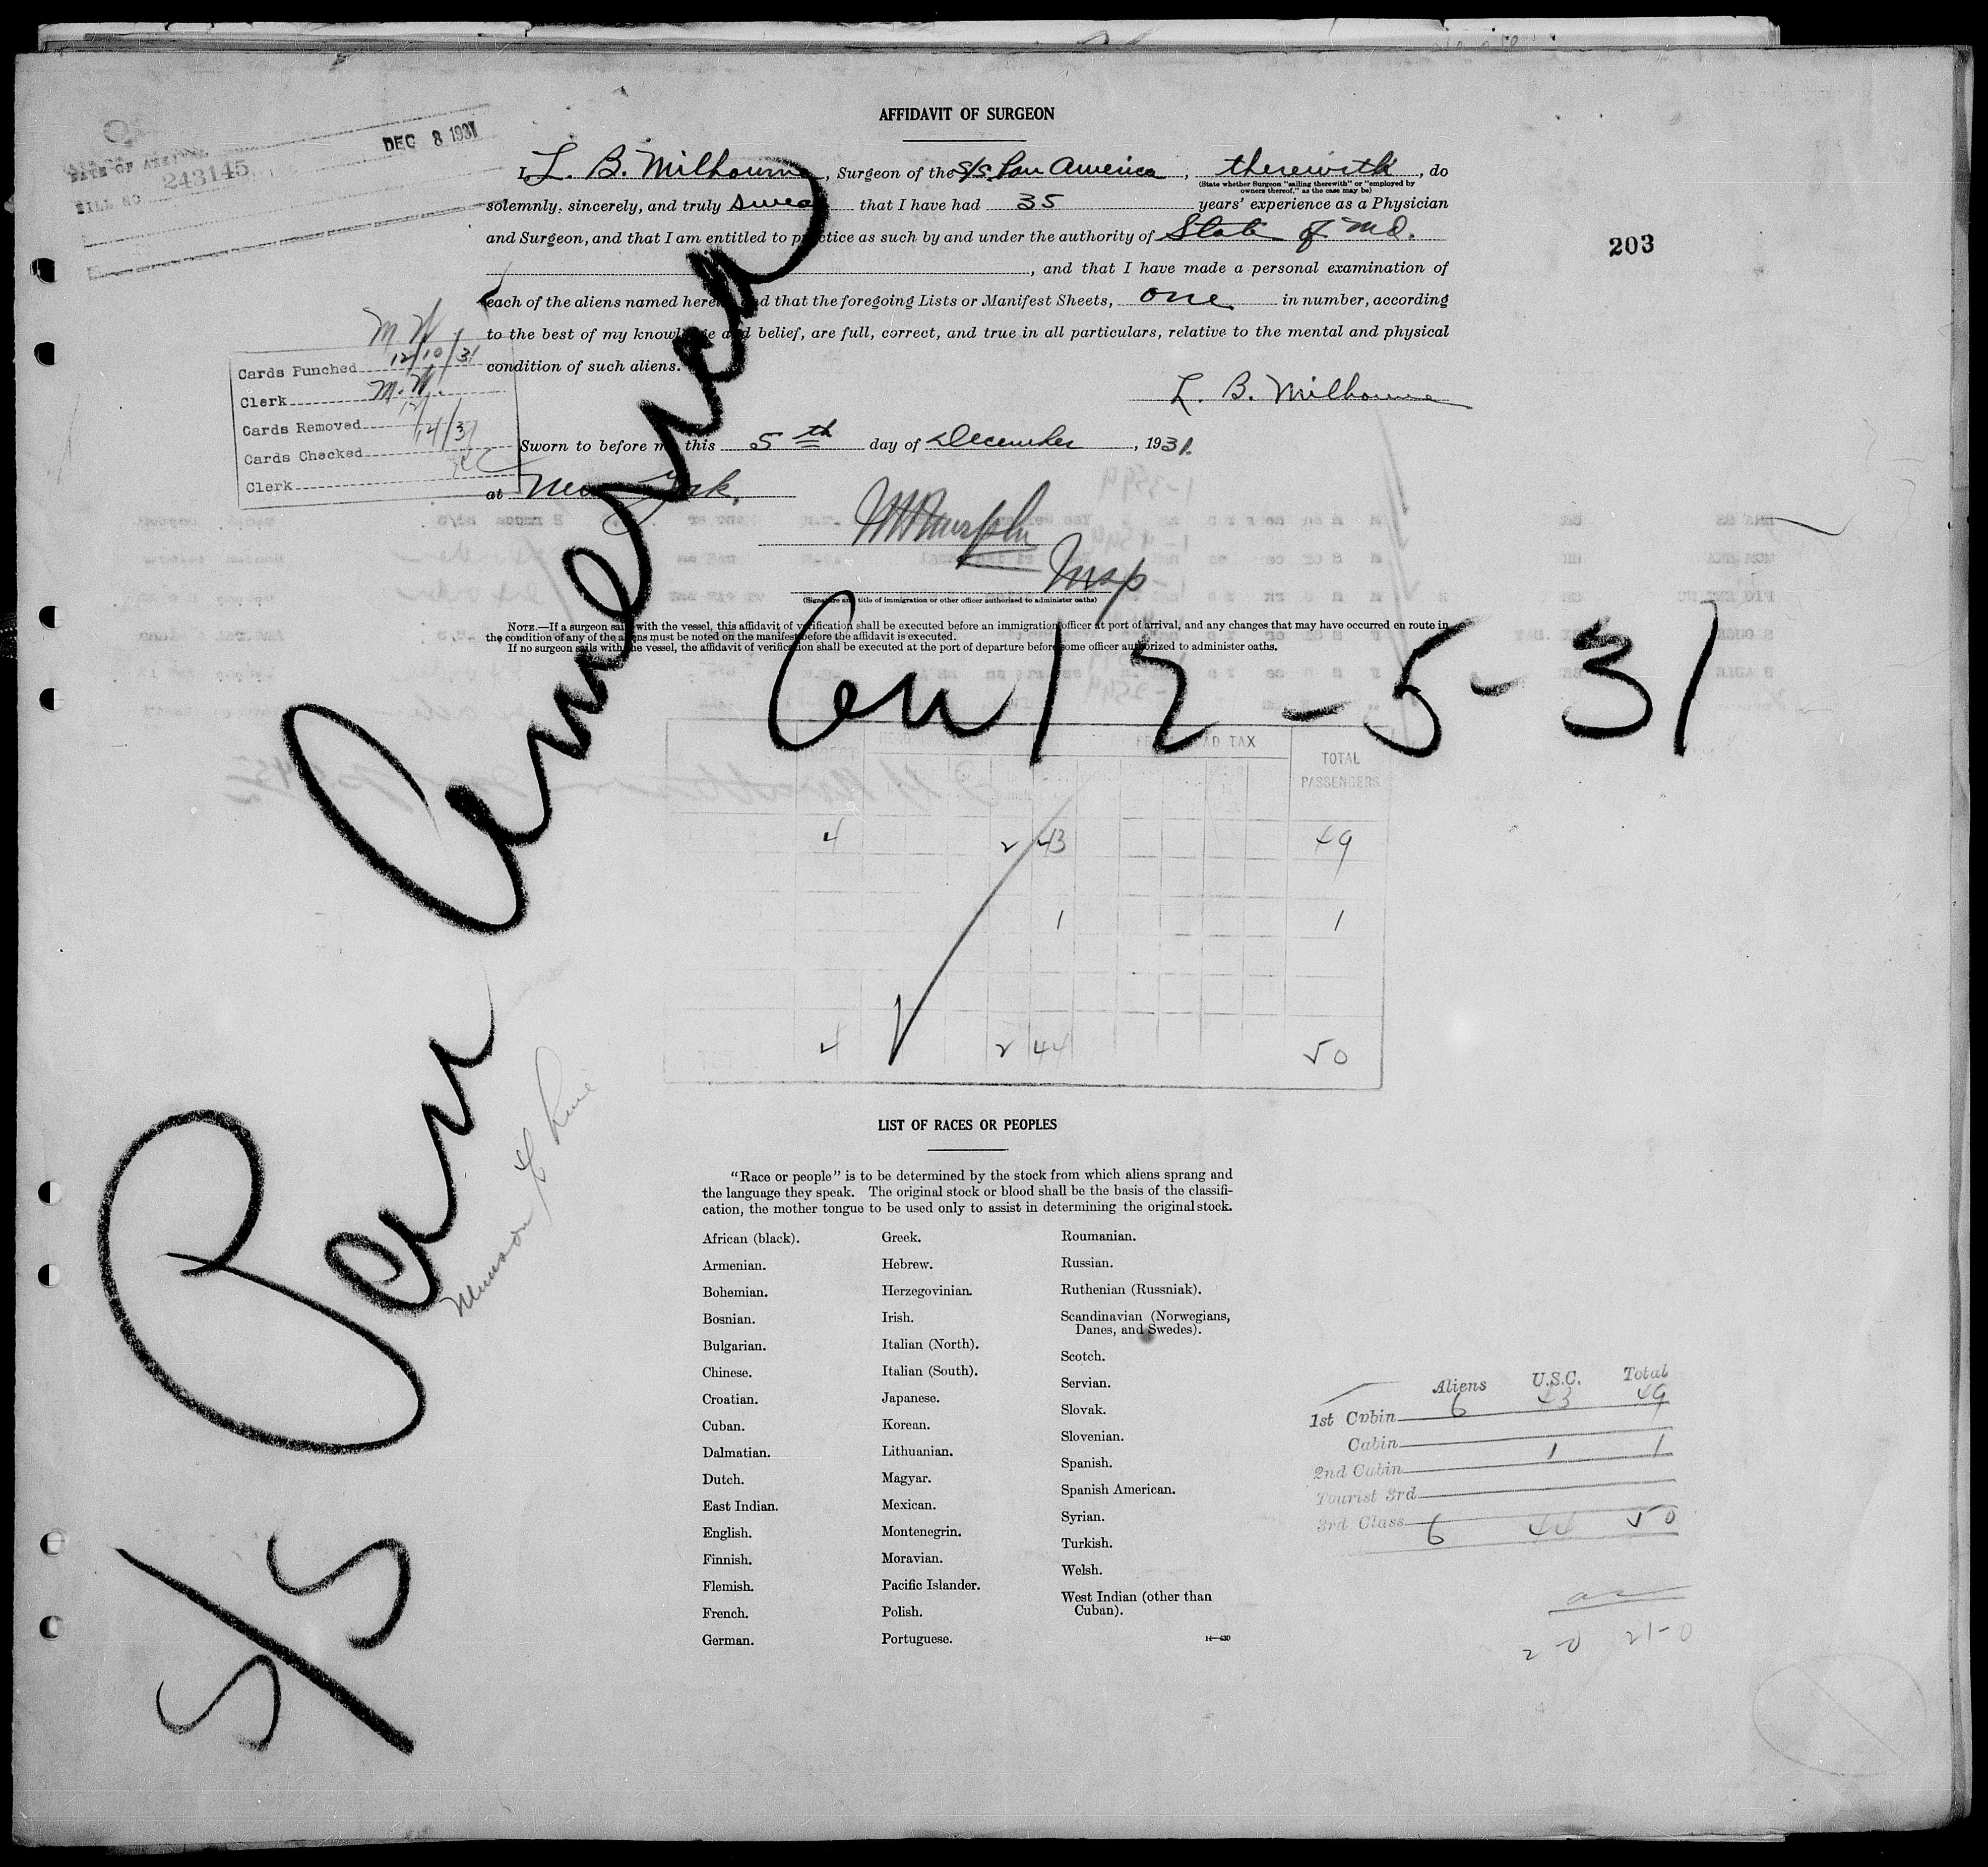 AFFIDAVIT OF SURGEON
DEC 8 1931
DATE OF ARRIVAL
BILL NO 243145
I, L. B. Milhourne, Surgeon of the S/S. Pan America, therewith, do
(State whether Surgeon "sailing therewith" or "employed by
owners thereof," as the case may be)
solemnly, sincerely, and truly swear that I have had 35 years' experience as a Physician
and Surgeon, and that I am entitled to practice as such by and under the authority of State of Md.
203
, and that I have made a personal examination of
each of the aliens named herein, and that the foregoing Lists or Manifest Sheets, one in number, according
to the best of my knowledge and belief, are full, correct, and true in all particulars, relative to the mental and physical
condition of such aliens.
M. W.
Cards Punched 12/10/31
Clerk M. W.
Cards Removed 12/
Cards Checked 14/31
Clerk
L. B. Milhourne
Sworn to before me this 5th day of December, 1931.
at New York.
W Murphy
Insp
(Signature and title of immigration or other officer authorized to administer oaths)
NOTE.—If a surgeon sails with the vessel, this affidavit of verification shall be executed before an immigration officer at port of arrival, and any changes that may have occurred en route in
the condition of any of the aliens must be noted on the manifest before the affidavit is executed.
If no surgeon sails with the vessel, the affidavit of verification shall be executed at the port of departure before some officer authorized to administer oaths.
S/S Pan America
12-5-31
Munson Line
HEAD TAX
TOTAL
PASSENGERS
4 2 43 49
1 1
4 2 44 50
LIST OF RACES OR PEOPLES
"Race or people" is to be determined by the stock from which aliens sprang and
the language they speak. The original stock or blood shall be the basis of the classifi-
cation, the mother tongue to be used only to assist in determining the original stock.
African (black).
Armenian.
Bohemian.
Bosnian.
Bulgarian.
Chinese.
Croatian.
Cuban.
Dalmatian.
Dutch.
East Indian.
English.
Finnish.
Flemish.
French.
German.
Greek.
Hebrew.
Herzegovinian.
Irish.
Italian (North).
Italian (South).
Japanese.
Korean.
Lithuanian.
Magyar.
Mexican.
Montenegrin.
Moravian.
Pacific Islander.
Polish.
Portuguese.
Roumanian.
Russian.
Ruthenian (Russniak).
Scandinavian (Norwegians,
Danes, and Swedes).
Scotch.
Servian.
Slovak.
Slovenian.
Spanish.
Spanish American.
Syrian.
Turkish.
Welsh.
West Indian (other than
Cuban).
Aliens U.S.C. Total
1st Cabin 6 43 49
Cabin
2nd Cabin 1 1
Tourist 3rd
3rd Class
6 44 50